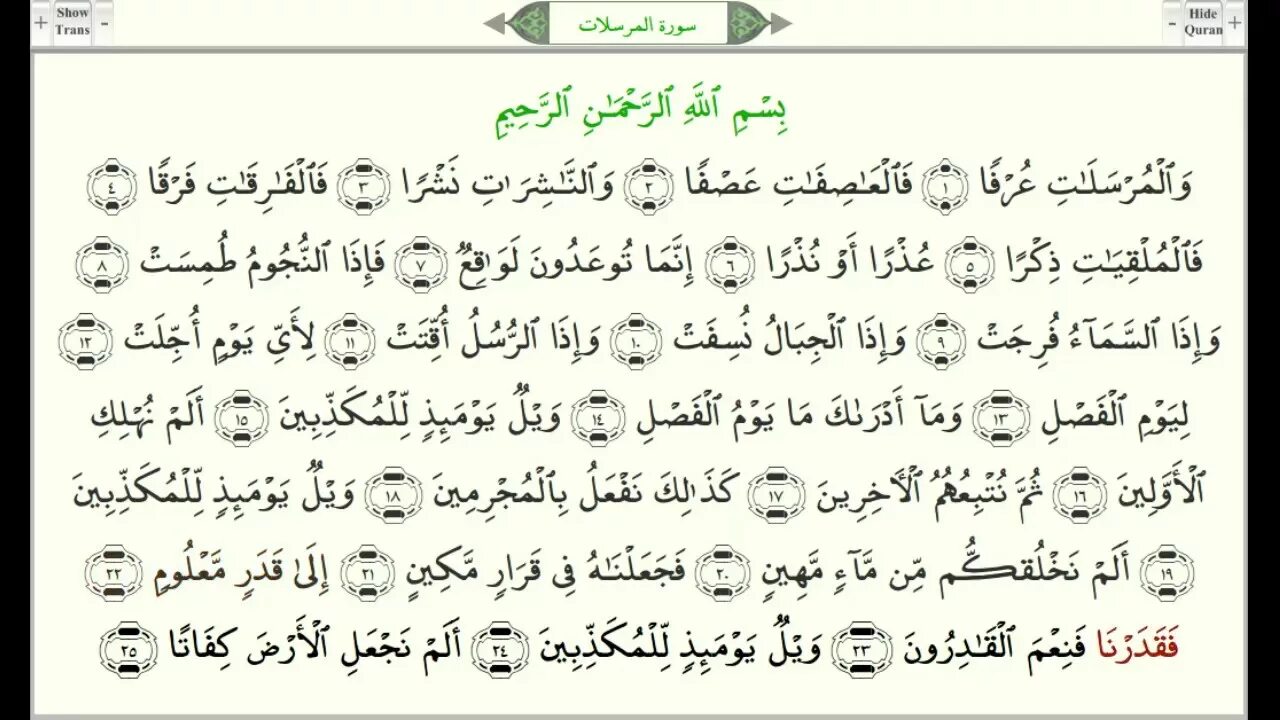 + Show Trans - سورة المرسلات - Hide Quran +
بِسْمِ ٱللَّهِ ٱلرَّحْمَـٰنِ ٱلرَّحِيمِ
وَٱلْمُرْسَلَـٰتِ عُرْفًا ١ فَٱلْعَـٰصِفَـٰتِ عَصْفًا ٢ وَٱلنَّـٰشِرَٰتِ نَشْرًا ٣ فَٱلْفَـٰرِقَـٰتِ فَرْقًا ٤
فَٱلْمُلْقِيَـٰتِ ذِكْرًا ٥ عُذْرًا أَوْ نُذْرًا ٦ إِنَّمَا تُوعَدُونَ لَوَٰقِعٌ ٧ فَإِذَا ٱلنُّجُومُ طُمِسَتْ ٨
وَإِذَا ٱلسَّمَآءُ فُرِجَتْ ٩ وَإِذَا ٱلْجِبَالُ نُسِفَتْ ١٠ وَإِذَا ٱلرُّسُلُ أُقِّتَتْ ١١ لِأَىِّ يَوْمٍ أُجِّلَتْ ١٢
لِيَوْمِ ٱلْفَصْلِ ١٣ وَمَآ أَدْرَىٰكَ مَا يَوْمُ ٱلْفَصْلِ ١٤ وَيْلٌ يَوْمَئِذٍ لِّلْمُكَذِّبِينَ ١٥ أَلَمْ نُهْلِكِ
ٱلْأَوَّلِينَ ١٦ ثُمَّ نُتْبِعُهُمُ ٱلْـَٔاخِرِينَ ١٧ كَذَٰلِكَ نَفْعَلُ بِٱلْمُجْرِمِينَ ١٨ وَيْلٌ يَوْمَئِذٍ لِّلْمُكَذِّبِينَ
١٩ أَلَمْ نَخْلُقكُّم مِّن مَّآءٍ مَّهِينٍ ٢٠ فَجَعَلْنَـٰهُ فِى قَرَارٍ مَّكِينٍ ٢١ إِلَىٰ قَدَرٍ مَّعْلُومٍ ٢٢
فَقَدَرْنَا فَنِعْمَ ٱلْقَـٰدِرُونَ ٢٣ وَيْلٌ يَوْمَئِذٍ لِّلْمُكَذِّبِينَ ٢٤ أَلَمْ نَجْعَلِ ٱلْأَرْضَ كِفَاتًا ٢٥